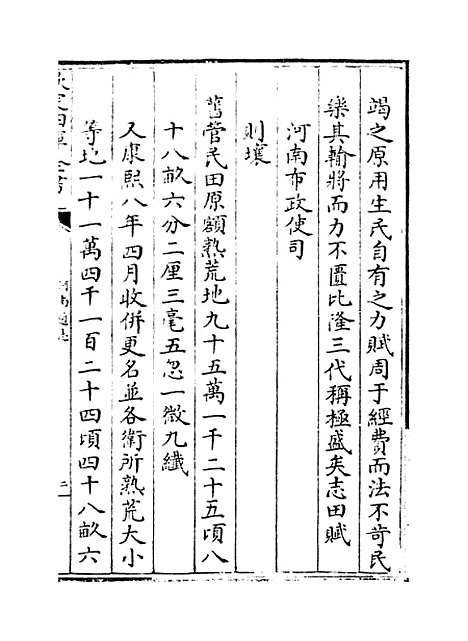 竭之原用生民自有之力賦周于經費而法不苛民
樂其輸將而力不匱比隆三代稱極盛矣志田賦
河南布政使司
則壤
舊管民田原額熟荒地九十五萬一千二十五頃八
十八畝六分二厘三毫五忽一微九纖
又康熙八年四月收併更名並各衛所熟荒大小
等地一十一萬四千一百二十四頃四十八畝六
欽定四庫全書
河南通志
二